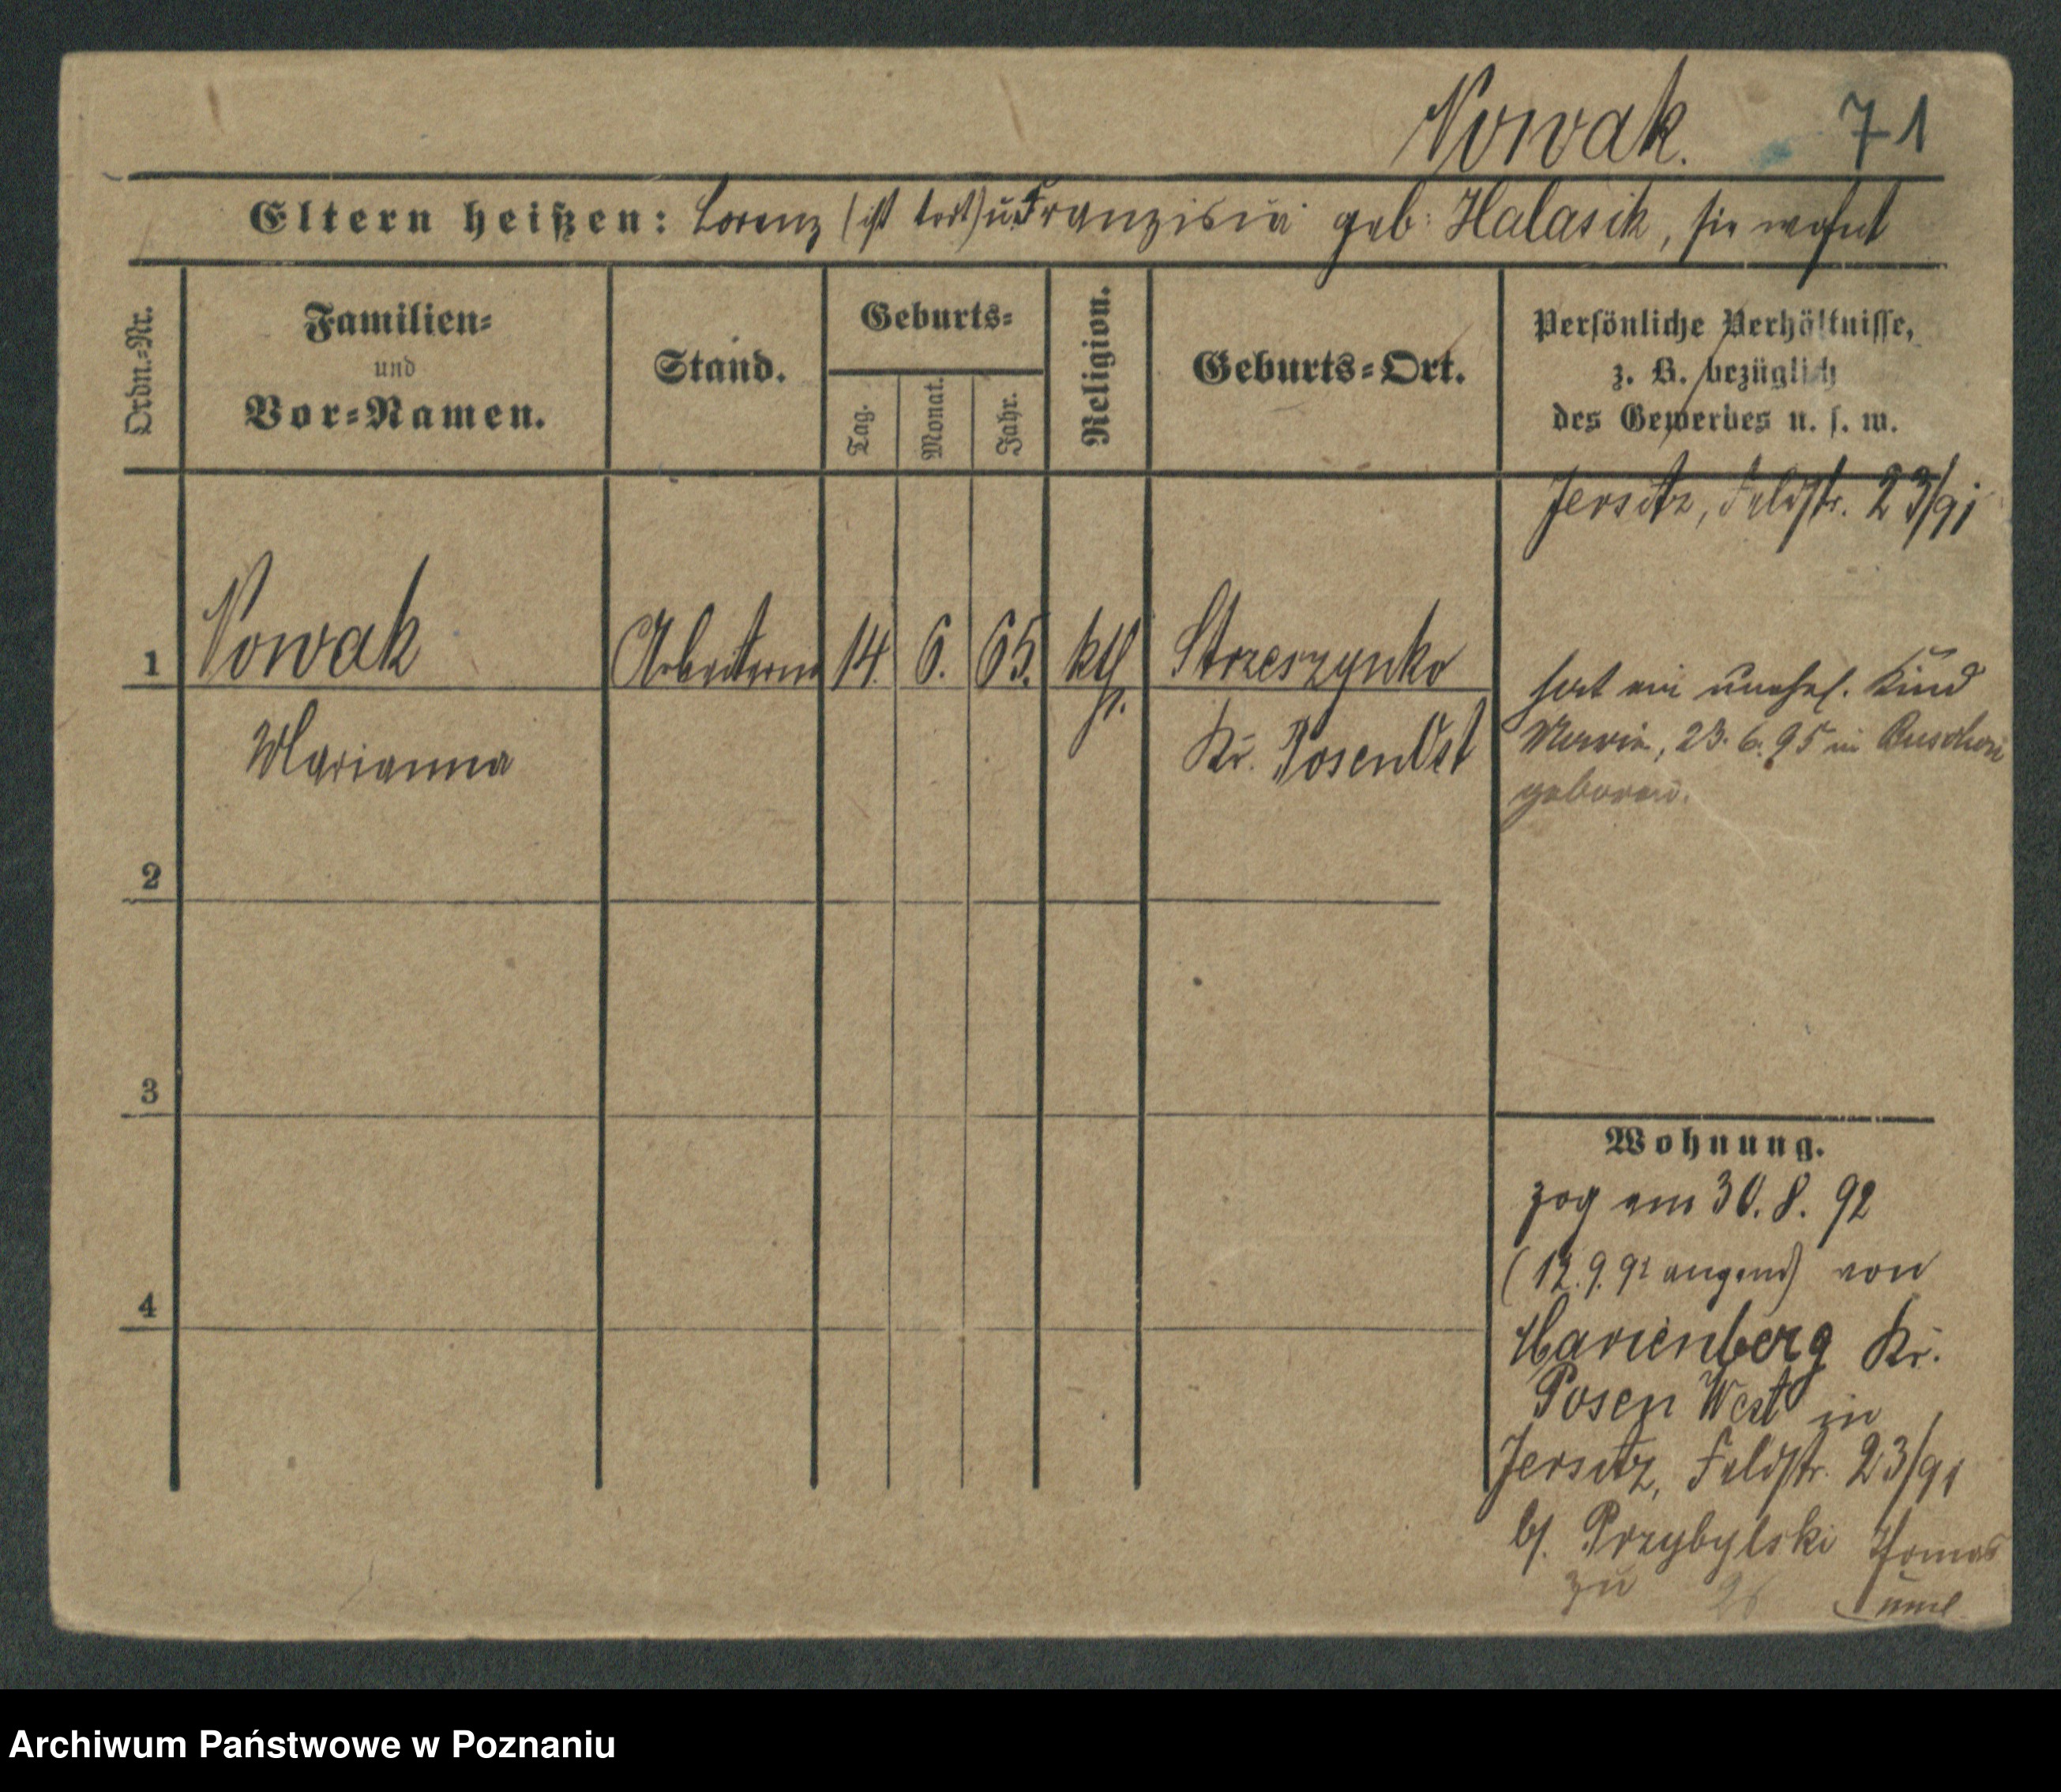 Nowak. 71
Eltern heißen: Lorenz (ist todt) u. Franziska geb: Halasik, sie wohnt
Ordn.-Nr.
Familien-
und
Vor-Namen.
Stand.
Geburts-
Tag.
Monat.
Jahr.
Religion.
Geburts-Ort.
Persönliche Verhältnisse,
z. B. bezüglich
des Gewerbes u. s. w.
Jersitz, Feldstr. 23/91
1 Nowak Arbeiterin 14. 6. 65. kth. Strzeszynko
Marianna Kr. Posen Ost
hat ein unehel. Kind
Maria, 23. 6. 95 in
geboren.
2
3
4
Wohnung.
zog am 30. 8. 92
(12. 9. 92 angem) von
Marienberg Kr.
Posen West in
Jersitz, Feldstr. 23/91
b/. Przybylski Thomas
zu